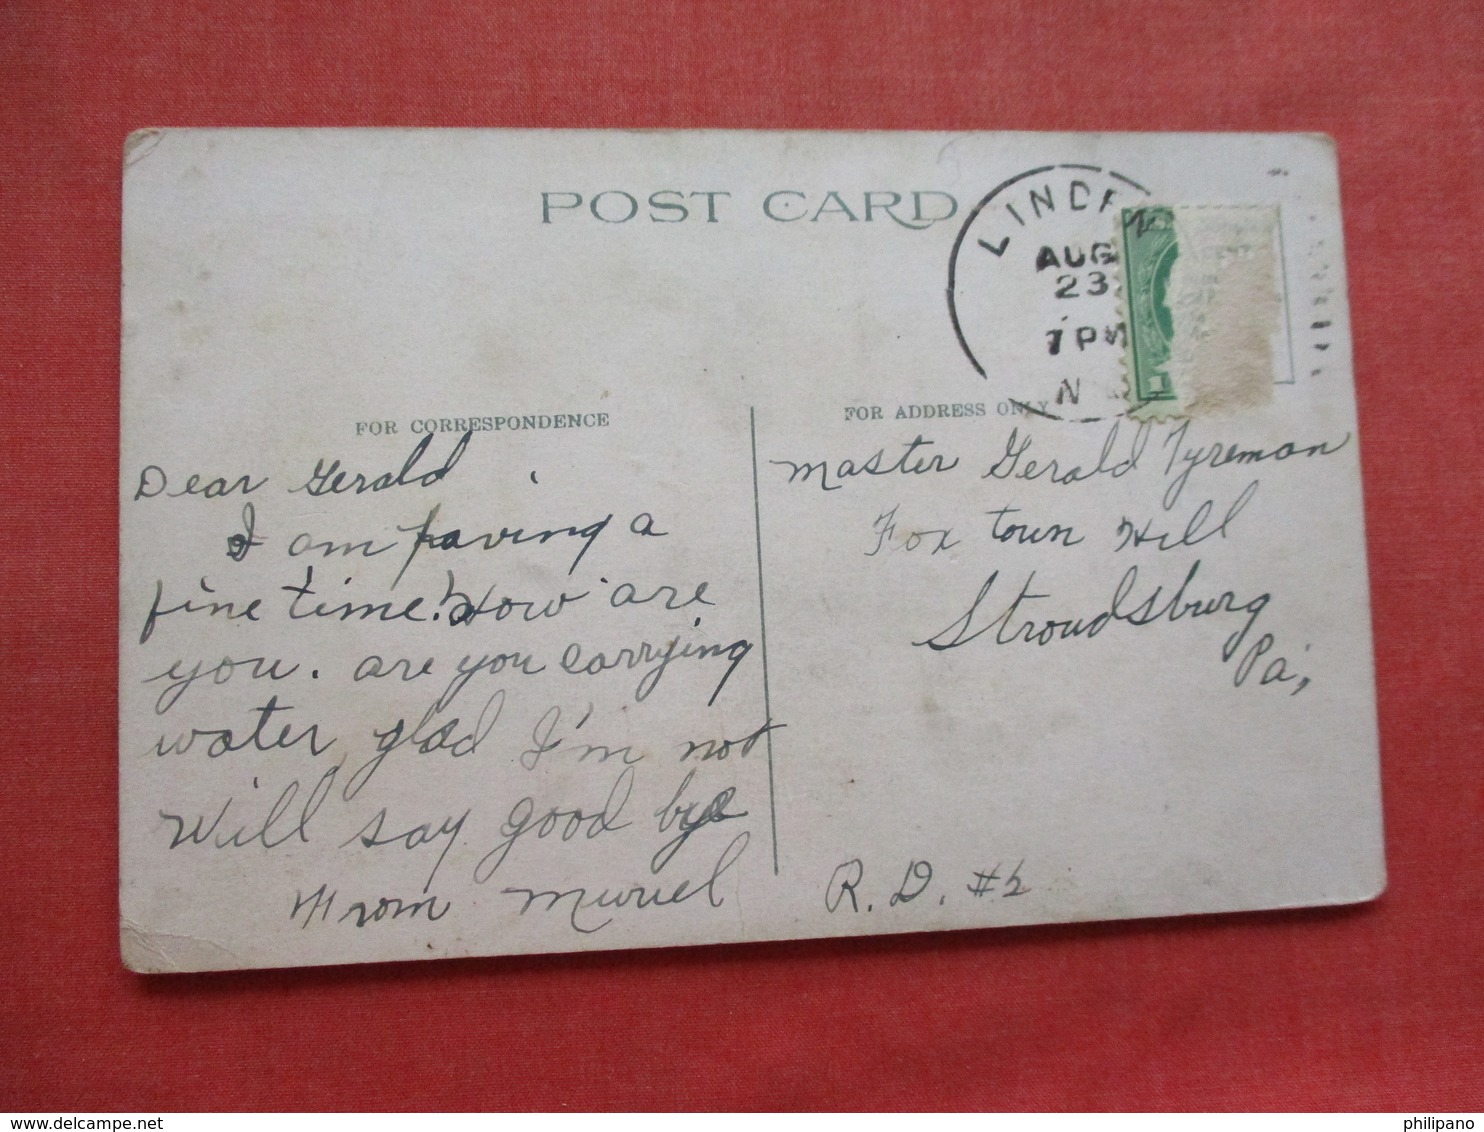 POST CARD
LINDEN
AUG
23
7 PM
N
FOR CORRESPONDENCE
FOR ADDRESS ONLY
Dear Gerald
I am having a
fine time. How are
you. are you carrying
water, glad I'm not
Will say good bye
From Muriel
Master Gerald Tyreman
Fox town Hill
Stroudsburg
Pa,
R. D. #2
philipano
www.delcampe.net